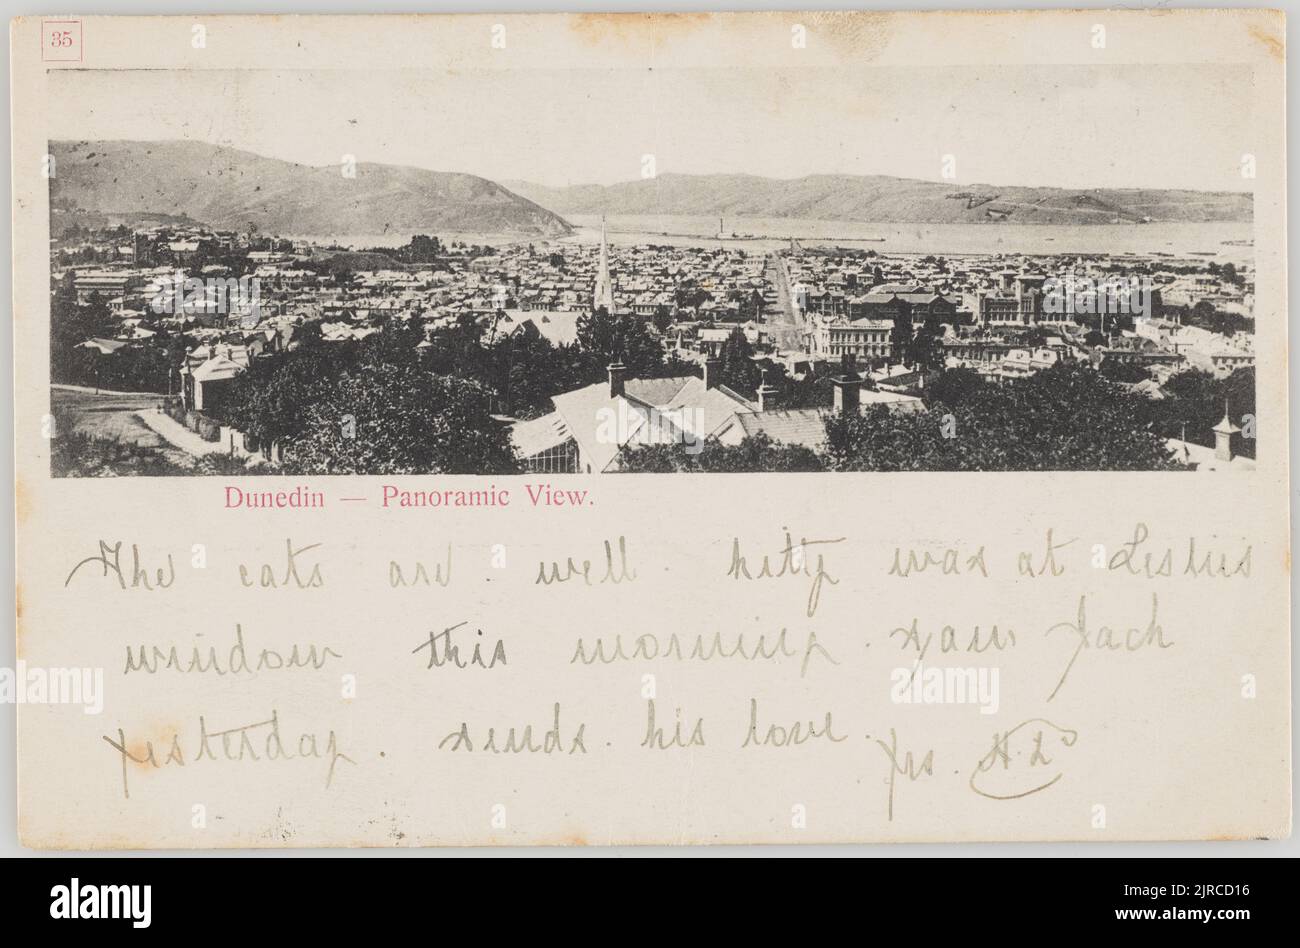 35
Dunedin — Panoramic View.
The cats are well. Kitty was at Leslies
window this morning. saw Jack
yesterday. sends. his love.
Yrs.
alamy
Image ID: 2JRCD16
www.alamy.com